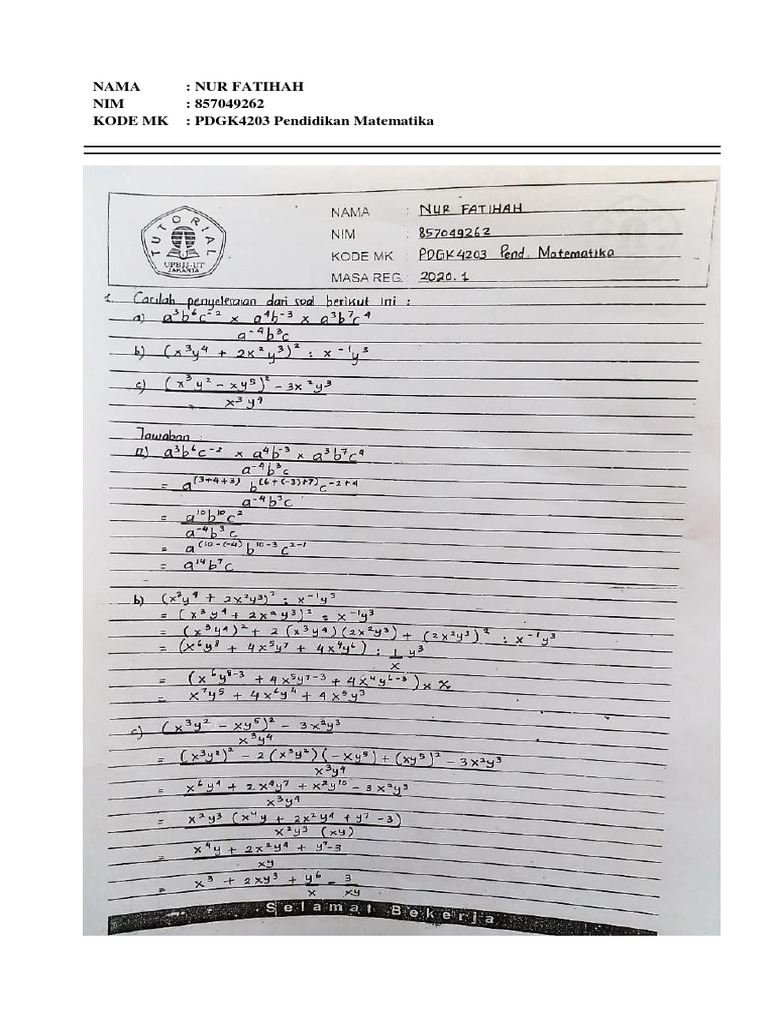 NAMA : NUR FATIHAH
NIM : 857049262
KODE MK : PDGK4203 Pendidikan Matematika
TUTORIAL
UPBJJ-UT
JAKARTA
NAMA : NUR FATIHAH
NIM : 857049262
KODE MK : PDGK4203 Pend. Matematika
MASA REG. : 2020.1
1. Carilah penyelesaian dari soal berikut ini :
a) a³b⁶c⁻² x a⁴b⁻³ x a³b⁷c⁴
a⁻⁴b³c
b) (x³y⁴ + 2x²y³)² : x⁻¹y³
c) (x³y² - xy⁵)² - 3x²y³
x³y⁴
Jawaban :
a³b⁶c⁻² x a⁴b⁻³ x a³b⁷c⁴
a⁻⁴b³c
= a⁽³⁺⁴⁺³⁾ b⁽⁶⁺⁽⁻³⁾⁺⁷⁾c⁻²⁺⁴
a⁻⁴b³c
= a¹⁰b¹⁰c²
a⁻⁴b³c
= a⁽¹⁰⁻⁽⁻⁴⁾ b¹⁰⁻³ c²⁻¹
= a¹⁴b⁷c
b) (x³y⁴ + 2x²y³)² : x⁻¹y³
= (x³y⁴ + 2x²y³)² : x⁻¹y³
= (x³y⁴)² + 2 (x³y⁴)(2x²y³) + (2x²y³)² : x⁻¹y³
= (x⁶y⁸ + 4x⁵y⁷ + 4x⁴y⁶) : 1 y³
x
= (x⁶y⁸⁻³ + 4x⁵y⁷⁻³ + 4x⁴y⁶⁻³) x x
= x⁷y⁵ + 4x⁶y⁴ + 4x⁵y³
c) (x³y² - xy⁵)² - 3x²y³
x³y⁴
= (x³y²)² - 2 (x³y²)(-xy⁵) + (xy⁵)² - 3x²y³
x³y⁴
= x⁶y⁴ + 2x⁴y⁷ + x²y¹⁰ - 3x²y³
x³y⁴
= x²y³ (x⁴y + 2x²y⁴ + y⁷ - 3)
x²y³ (xy)
= x⁴y + 2x²y⁴ + y⁷-3
xy
= x³ + 2xy³ + y⁶ - 3
x xy
Selamat Bekerja